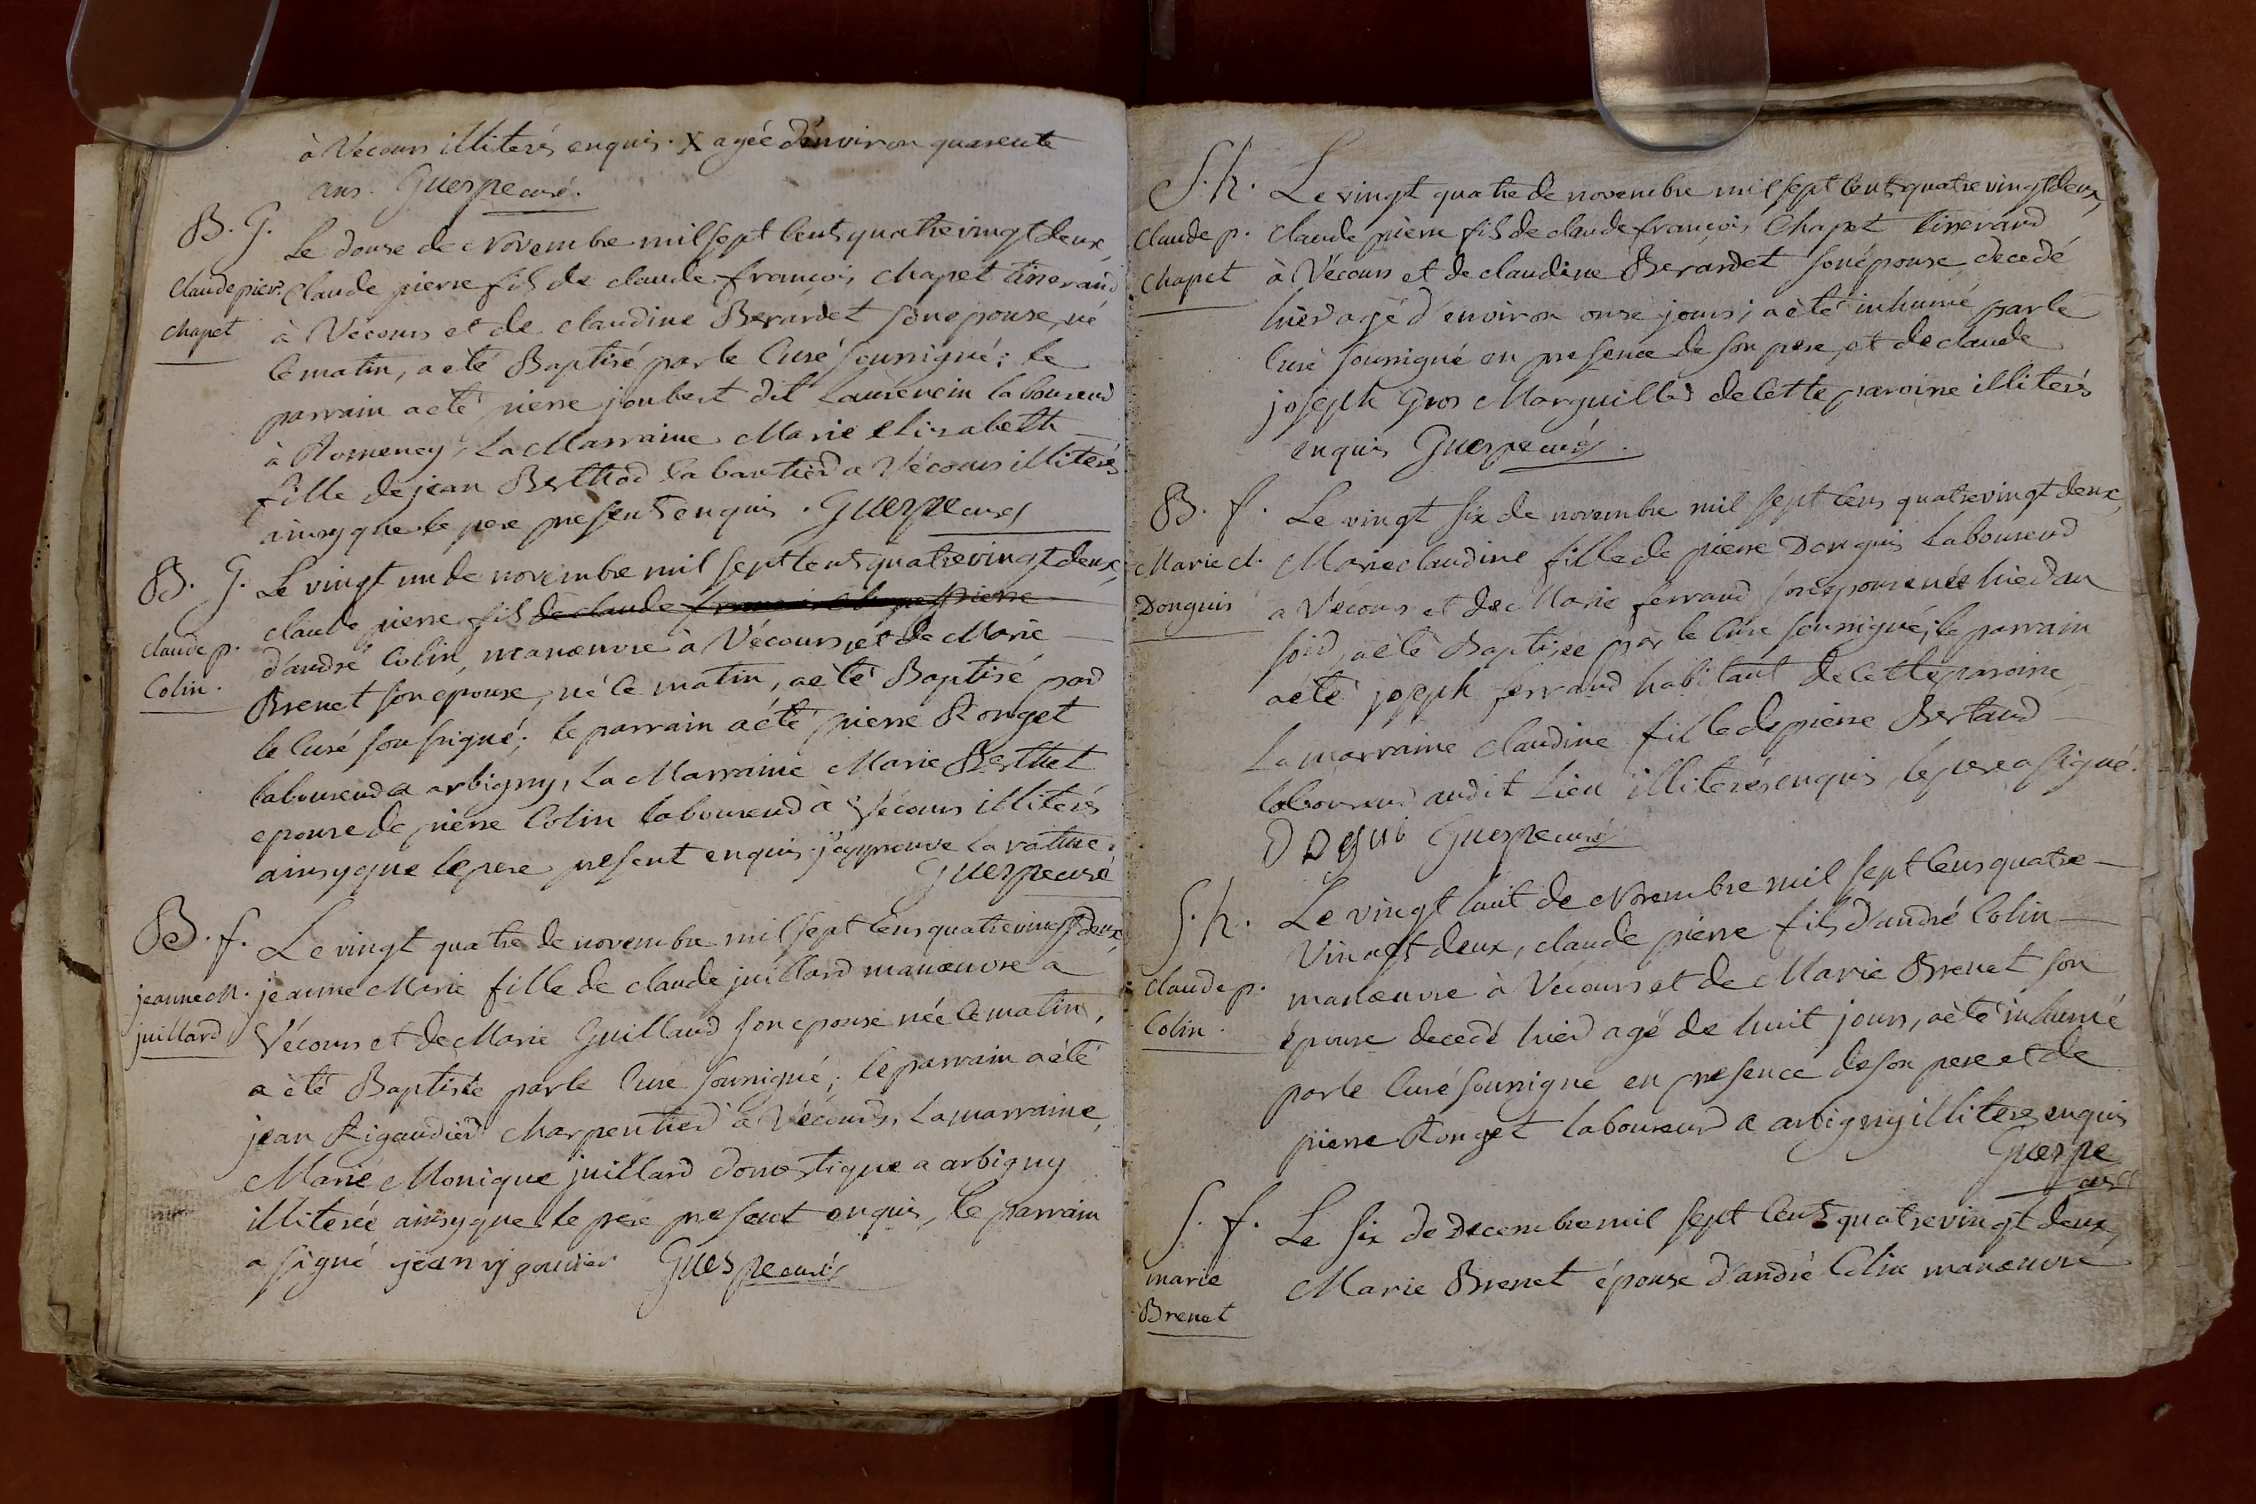 à Vécours illiterés enquis. X agée d'environ quarente
ans. Guerpe curé.
B. G.
Claude pier.
chapet
Le douse de Novembre mil sept cents quatre vingt deux,
Claude pierre fils de claude françois chapet tisserand
à Vécours et de claudine Berardet son epouse, né
ce matin, a eté Baptisé par le curé soussigné ; le
parrain a eté pierre joubert dit Laurencin laboureur
à Romenay, La Marraine Marie elisabeth
fille de jean Berthod cabartier a Vécours illiterés
ainsy que le pere presents enquis. Guerpe curé
B. G.
claude p.
Colin.
Le vingt un de novembre mil sept cents quatre vingt deux,
claude pierre fils de claude françois chapet pierre
d'andré Colin, manœuvre à Vécours et de Marie
Brenet son epouse, né ce matin, a eté Baptisé par
le curé soussigné ; le parrain a eté pierre Ronget
laboureur a arbigny, La Marraine Marie Berthet
epouse de pierre Colin laboureur à Vécours illiterés
ainsy que le pere present enquis. j'approuve la rature.
Guerpe curé
B. f.
jeanne M.
juillard
Le vingt quatre de novembre mil sept cens quatre vingt deux
jeanne Marie fille de claude juillard manœuvre a
Vécours et de Marie Guillaud son epouse née ce matin,
a été Baptisée par le curé soussigné ; le parrain a été
jean Rigaudier charpentier à Vécours, La marraine,
Marie Monique juillard domestique a arbigny
illiterée ainsy que le pere present enquis, le parrain
a signé jean rigoudier Guerpe curé
S. h.
Claude p.
Chapet
Le vingt quatre de novembre mil sept cents quatre vingt deux,
claude pierre fils de claude françois Chapet tisserand
à Vécours et de claudine Berardet son épouse decedé
hier agé d'environ onse jours, a été inhumé par le
curé soussigné en presence de son pere, et de claude
joseph Gros Marguiller de cette paroisse illiterés
enquis Guerpe curé.
B. f.
Marie cl.
Donguis
Le vingt six de novembre mil sept cens quatre vingt deux,
Marie claudine fille de pierre Donguis Laboureur
a Vécours et de Marie ferrand son epouse née hier au
soir, a été Baptisée par le curé soussigné ; le parrain
a été joseph ferrand habitant de cette paroisse
La marraine claudine fille de pierre Bertaud
laboureur audit Lieu illiterés enquis, le pere a signé.
Dogui Guerpe curé
S. h.
Claude p.
Colin.
Le vingt huit de Novembre mil sept cens quatre
Vingt deux, claude pierre fils d'andré Colin
manœuvre à Vécours et de Marie Brenet son
épouse decedé hier agé de huit jours, a été inhumé
par le curé soussigné en presence de son pere et de
pierre Ronget laboureur a arbigny illiterés enquis
Guerpe
curé
S. f.
marie
Brenet
Le six de Decembre mil sept cents quatre vingt deux,
Marie Brenet épouse d'andré Colin manœuvre